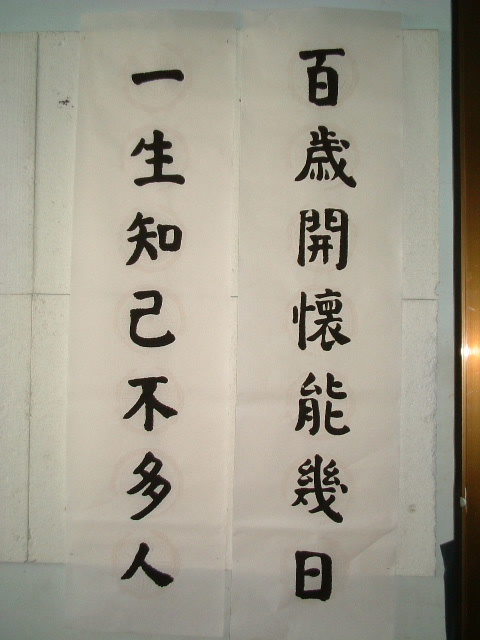 百歳開懷能幾日
一生知己不多人